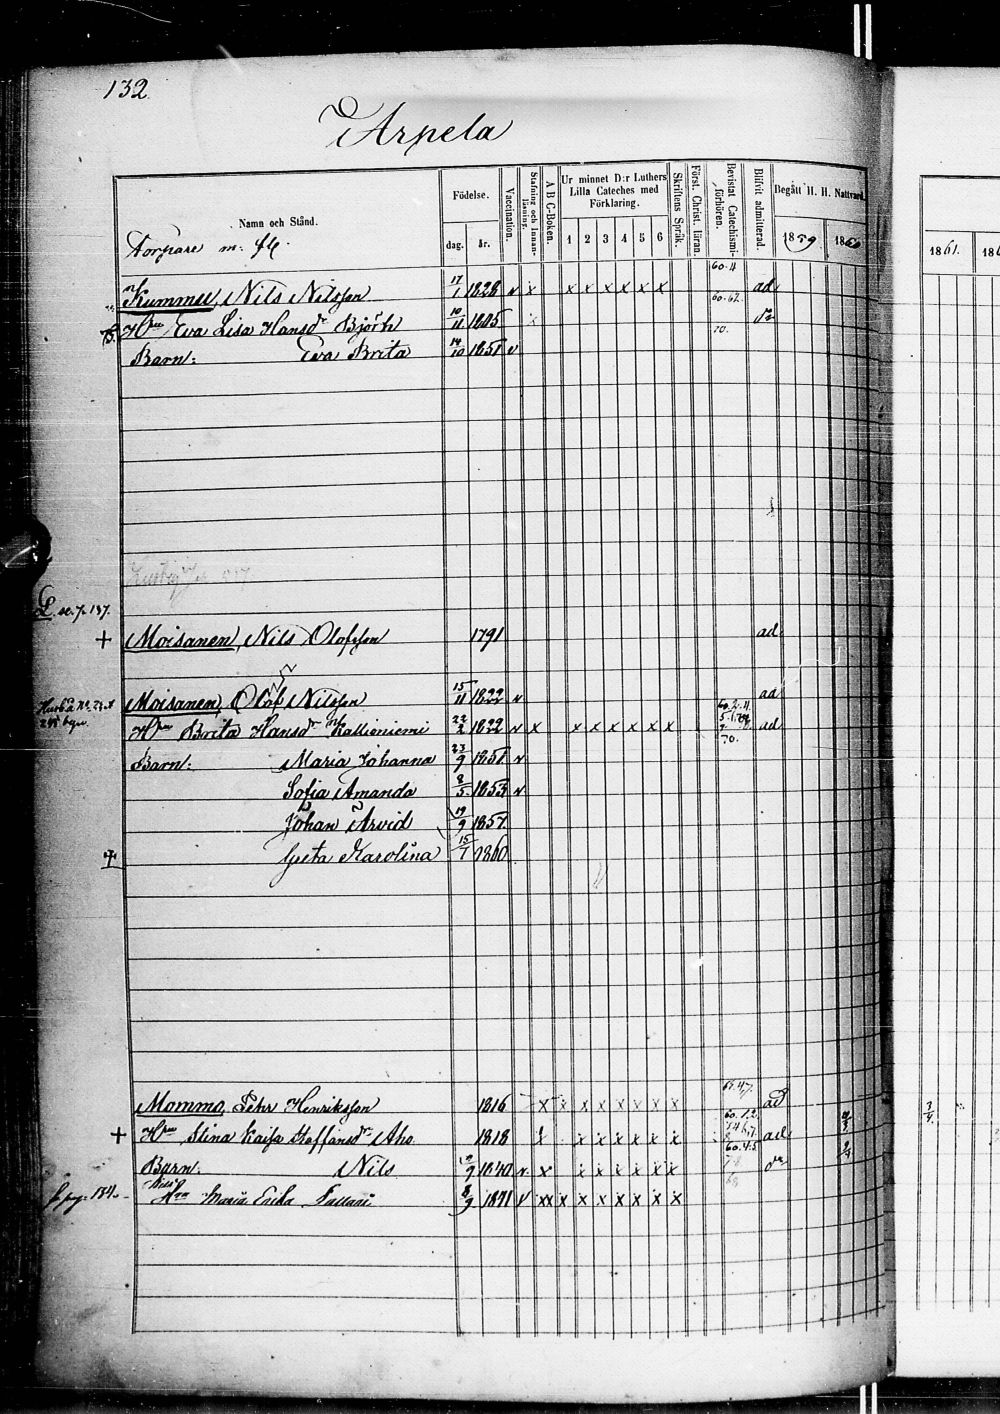 132.
Arpela
Namn och Stånd.
Torpare m. fl.
Födelse.
dag. år.
Vaccination.
Stafning och Innanläsning.
A B C-Boken.
Ur minnet D:r Luthers Lilla Cateches med Förklaring.
1 2 3 4 5 6
Skriftens Språk.
Först. Christ. läran.
Bevistat Catechismiförhören.
Blifvit admitterad.
Begått H. H. Nattvard.
1859 1860
1861. 186
Kummu, Nils Nilsson 17/1 1828 v x x x x x x x 60. ad
Hru Eva Lisa Hansdr Björk 10/11 1805 x 70. dr
Barn: Eva Brita 14/10 1851 v
L. se. p. 137.
+ Moisanen, Nils Olofsson 1791 ad
Moisanen, Olof Nilsson 15/11 1822 v ad
Hru Brita Hansdr Kallioniemi 22/2 1822 v x x x x x x x 70. ad
Barn: Maria Johanna 23/9 1851 v
Sofia Amanda 8/5 1853 v
Johan Arvid 19/9 1857
+ Greta Karolina 15/1 1860
Mommo, Pehr Henriksson 1816 x x x x x x x x ad
+ Hru Stina Kaisa Staffansdr Aho 1818 x x x x x x x ad
Barn: Nils 9 1840 v x x x x x x x dr
pag. 134. Hru Maria Erika 8/9 1871 v xx x x x x x x x